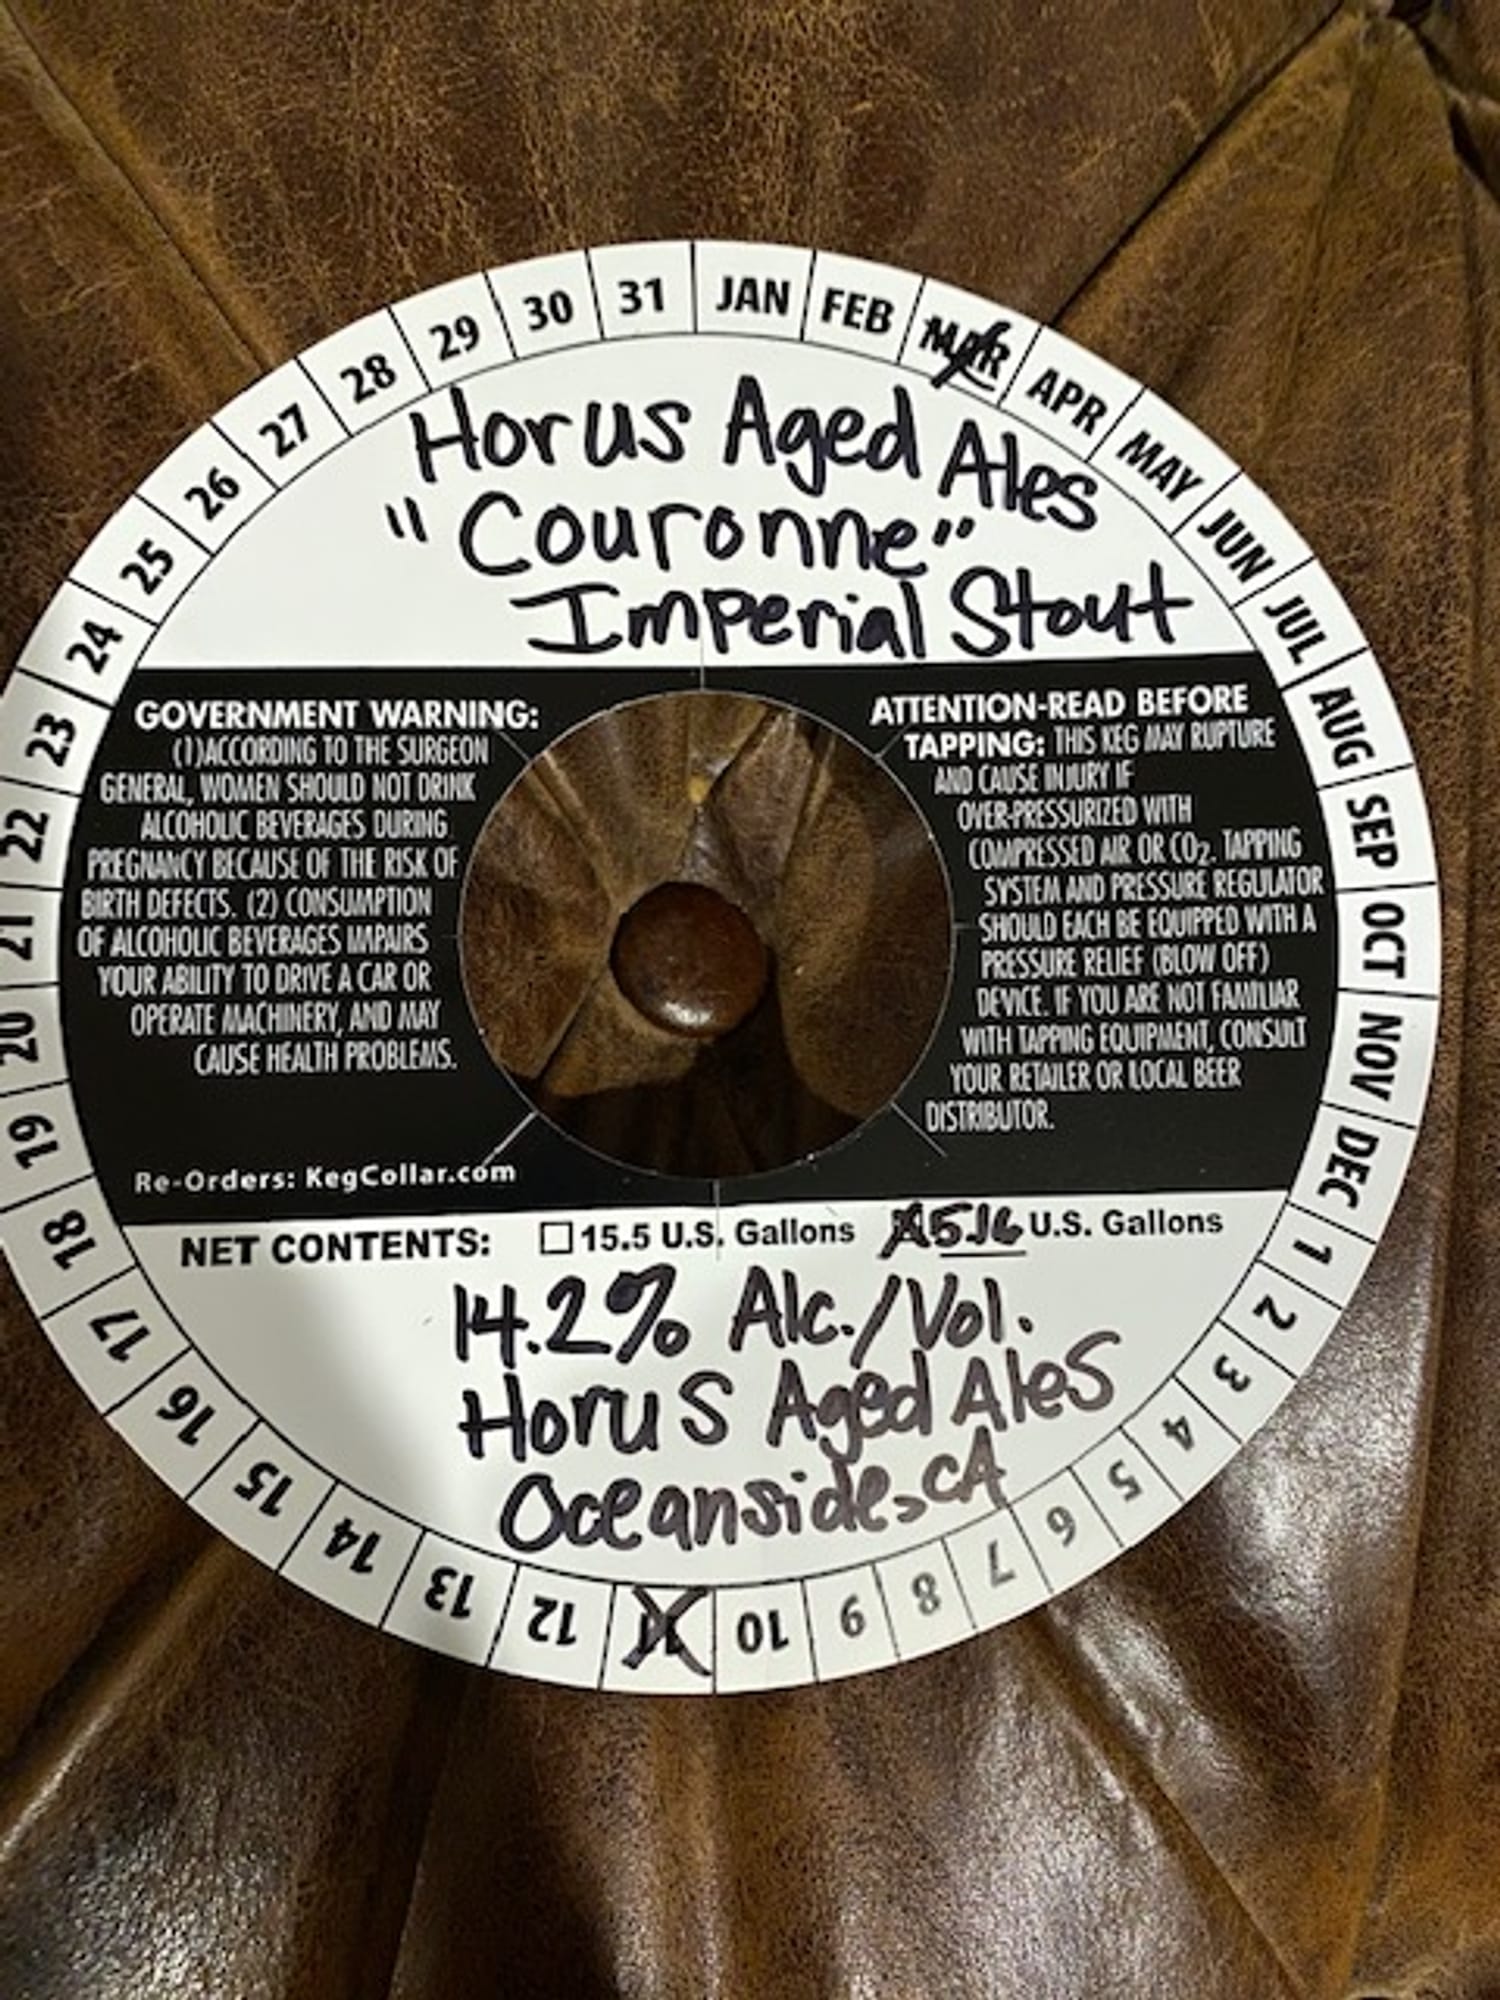 JAN FEB MAR APR MAY JUN JUL AUG SEP OCT NOV DEC 1 2 3 4 5 6 7 8 9 10 11 12 13 14 15 16 17 18 19 20 21 22 23 24 25 26 27 28 29 30 31
Horus Aged Ales
"Couronne"
Imperial Stout
GOVERNMENT WARNING:
(1)ACCORDING TO THE SURGEON
GENERAL, WOMEN SHOULD NOT DRINK
ALCOHOLIC BEVERAGES DURING
PREGNANCY BECAUSE OF THE RISK OF
BIRTH DEFECTS. (2) CONSUMPTION
OF ALCOHOLIC BEVERAGES IMPAIRS
YOUR ABILITY TO DRIVE A CAR OR
OPERATE MACHINERY, AND MAY
CAUSE HEALTH PROBLEMS.
Re-Orders: KegCollar.com
ATTENTION-READ BEFORE
TAPPING: THIS KEG MAY RUPTURE
AND CAUSE INJURY IF
OVER-PRESSURIZED WITH
COMPRESSED AIR OR CO2. TAPPING
SYSTEM AND PRESSURE REGULATOR
SHOULD EACH BE EQUIPPED WITH A
PRESSURE RELIEF (BLOW OFF)
DEVICE. IF YOU ARE NOT FAMILIAR
WITH TAPPING EQUIPMENT, CONSULT
YOUR RETAILER OR LOCAL BEER
DISTRIBUTOR.
NET CONTENTS: 15.5 U.S. Gallons 5.16 U.S. Gallons
14.2% Alc./Vol.
Horus Aged Ales
Oceanside, CA